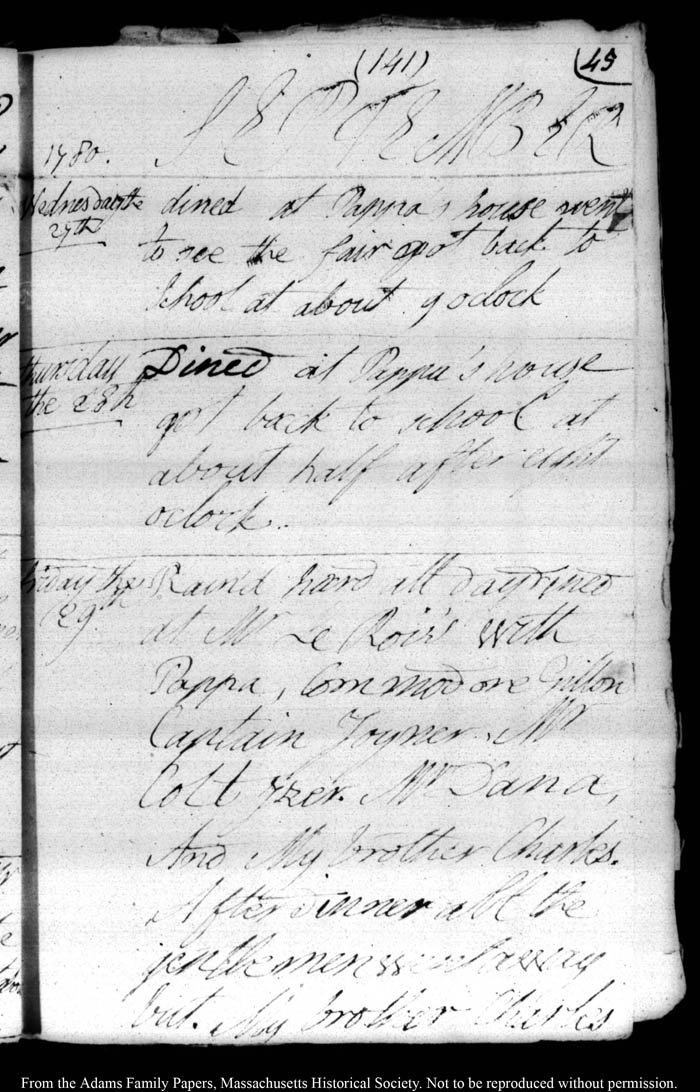 (141)
(45
SEPTEMBER
1780.
Wednesday the
27th
dined at Pappa's house went
to see the fair got back to
school at about 9 oclock
thursday
the 28th
Dined at Pappa's house
got back to school at
about half after eight
oclock.
Friday the
29th
Rain'd hard all day dined
at Mr Le Roi's with
Pappa, Commodore Gillon
Captain Joyner, Mr
Mr Dana,
And My brother Charles.
After dinner all the
gentlemen went away
but. My brother Charles
From the Adams Family Papers, Massachusetts Historical Society. Not to be reproduced without permission.